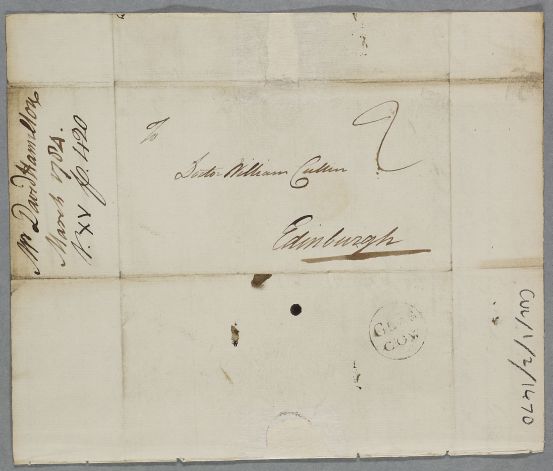 To
Doctor William Cullen
Edinburgh
2
Mr David Hamilton
March 1784.
V. XV p. 420
GLAS
GOW
CUL/1/2/1470